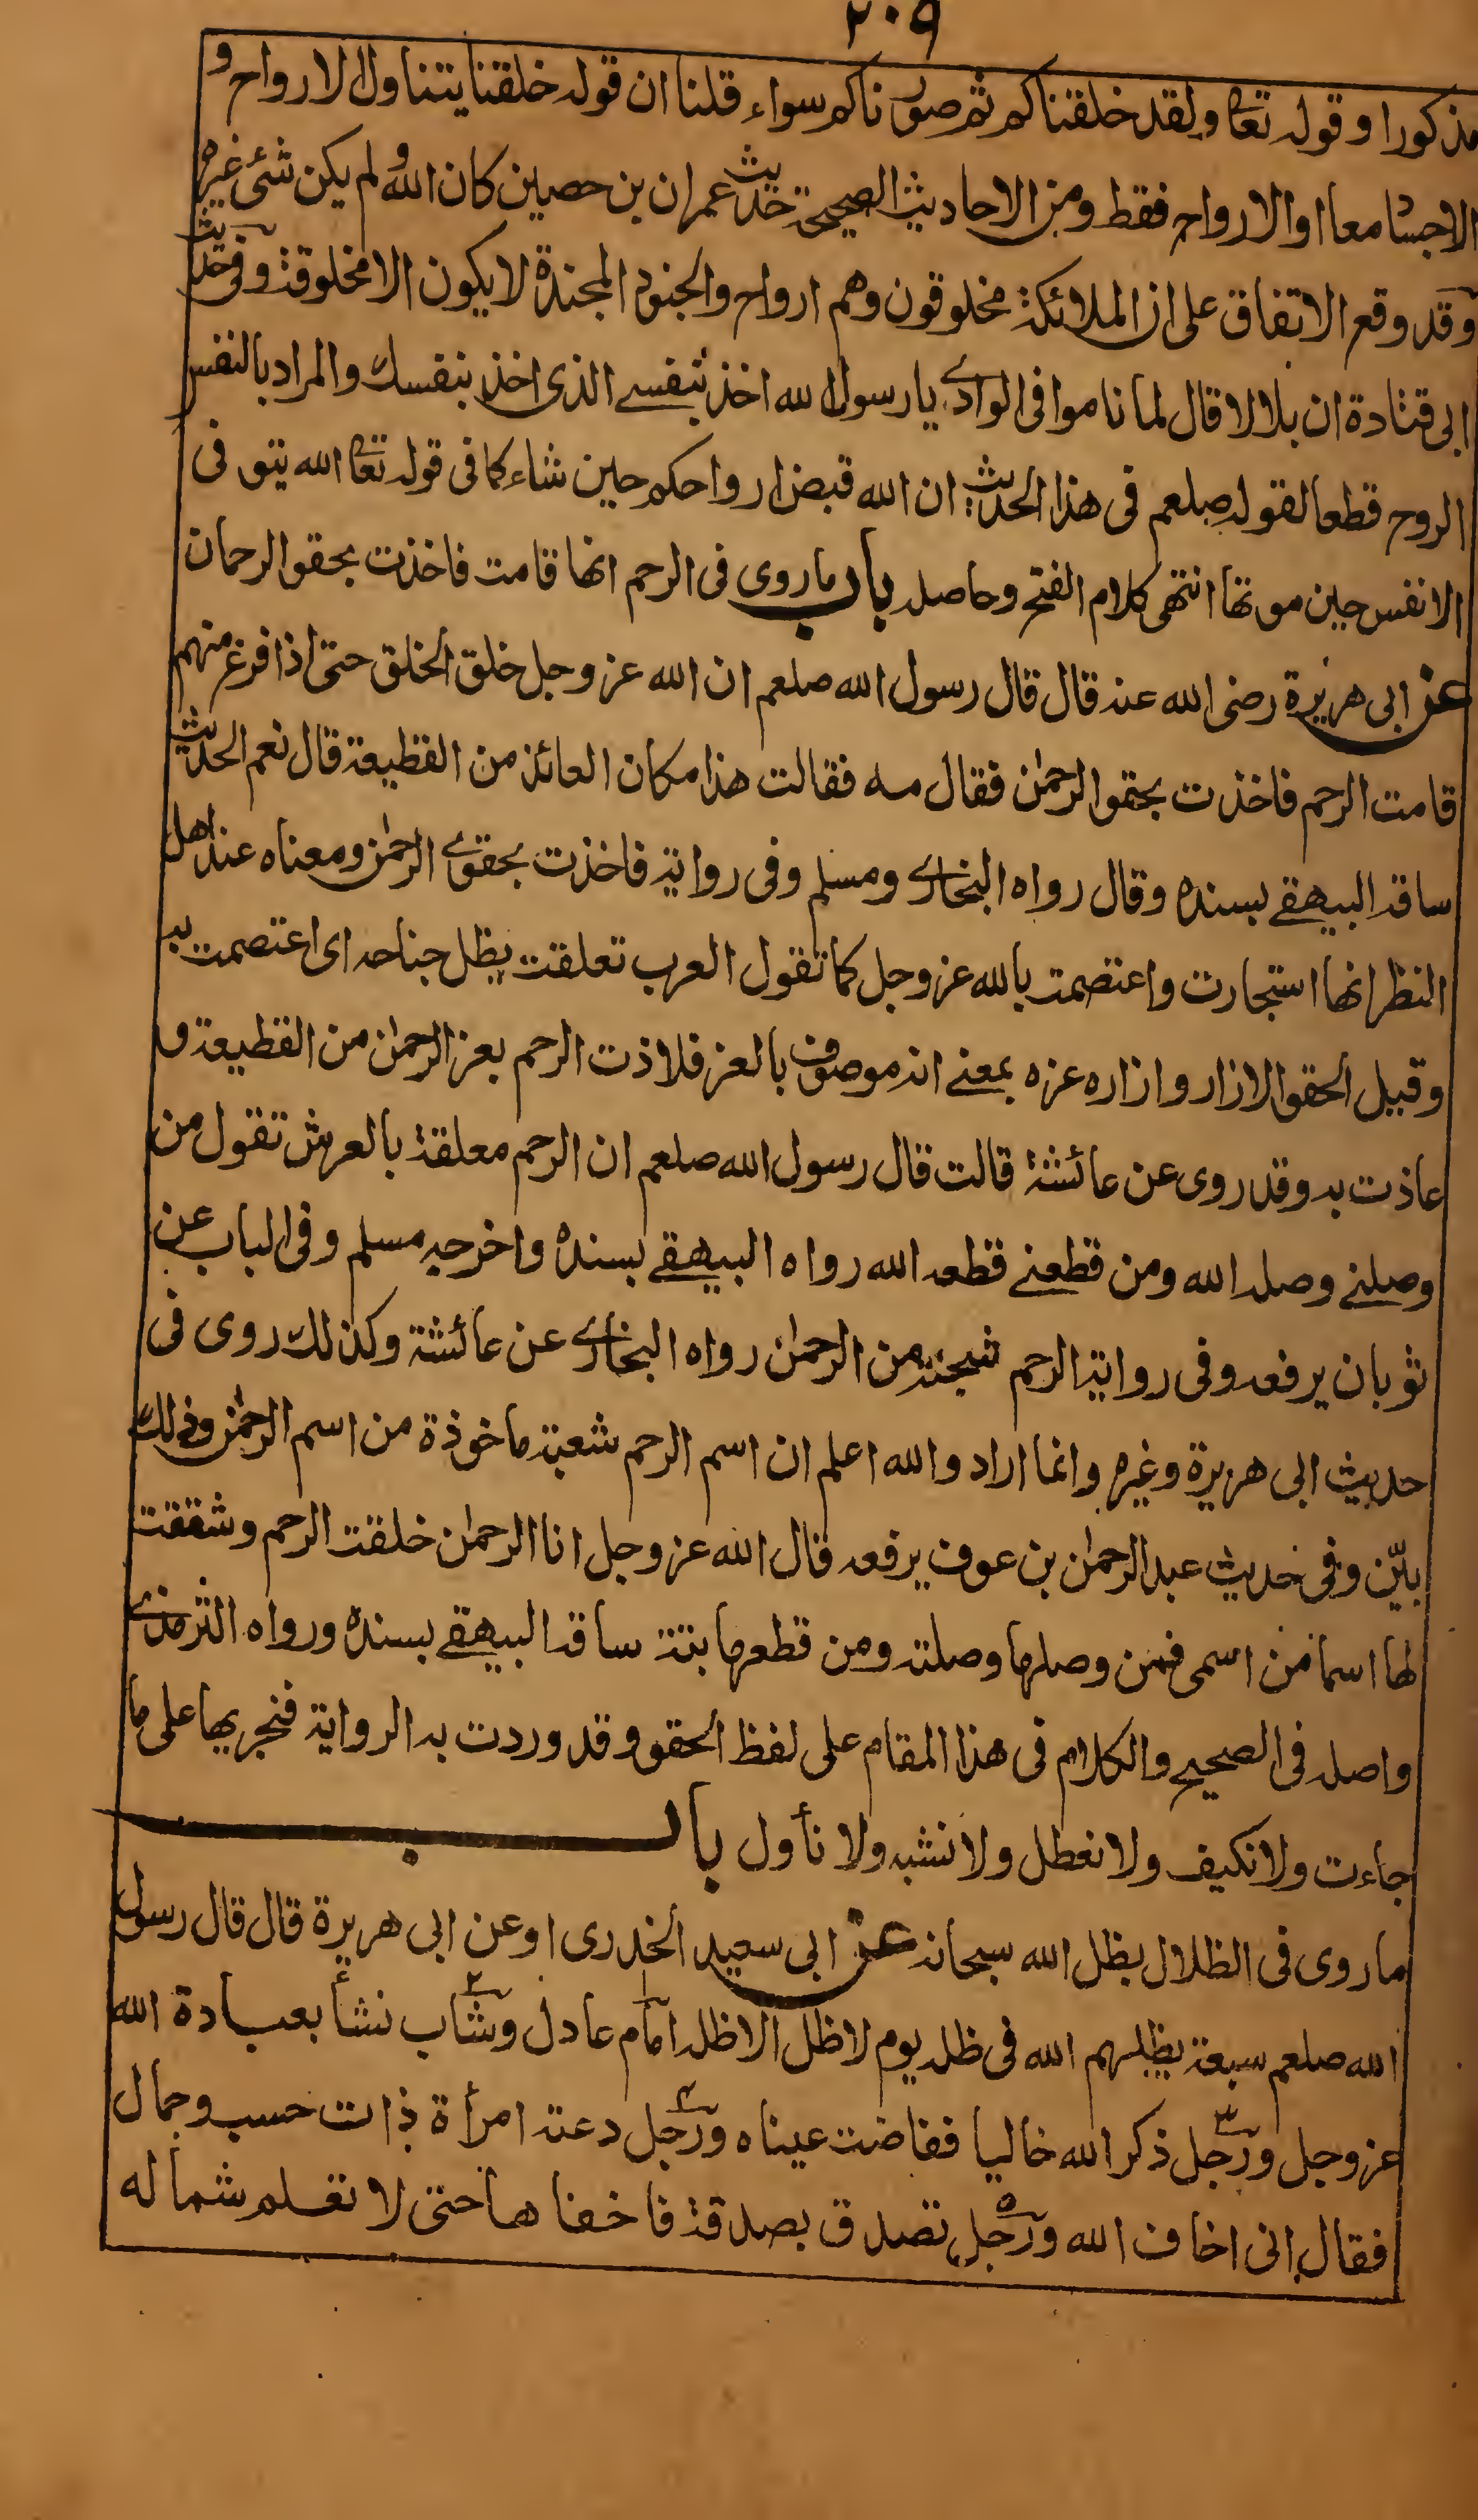 ٢٠٩
مذكورا وقوله تعالى ولقد خلقناكم ثم صورناكم سواء قلنا ان قوله خلقنا يتناول الارواح و
الاجساد معا او الارواح فقط ومن الاحاديث الصحيحة حديث عمران بن حصين كان الله ولم يكن شئ غيره
وقد وقع الاتفاق على ان الملائكة مخلوقون وهم ارواح والجنود المجندة لا يكون الا مخلوقة وفى حديث
ابى قتادة ان بلالا قال لما ناموا فى الوادى يا رسول الله اخذ بنفسى الذى اخذ بنفسك والمراد بالنفس
الروح قطعا لقوله صلعم فى هذا الحديث ان الله قبض ارواحكم حين شاء كما فى قوله تعالى الله يتوفى
الانفس حين موتها انتهى كلام الفتح وحاصله باب ما روى فى الرحم انها قامت فاخذت بحقو الرحمان
عن ابى هريرة رضى الله عنه قال قال رسول الله صلعم ان الله عز وجل خلق الخلق حتى اذا فرغ منهم
قامت الرحم فاخذت بحقو الرحمن فقال مه فقالت هذا مكان العائذ من القطيعة قال نعم الحديث
ساقه البيهقى بسنده وقال رواه البخارى ومسلم وفى رواية فاخذت بحقوى الرحمن ومعناه عند اهل
النظر انها استجارت واعتصمت بالله عز وجل كما تقول العرب تعلقت بظل جناحه اى اعتصمت به
وقيل الحقو الازار وازاره عزه بمعنى انه موصوف بالعز فلاذت الرحم بعز الرحمن من القطيعة و
عاذت به وقد روى عن عائشة قالت قال رسول الله صلعم ان الرحم معلقة بالعرش تقول من
وصلنى وصله الله ومن قطعنى قطعه الله رواه البيهقى بسنده واخرجه مسلم وفى الباب عن
ثوبان يرفعه وفى رواية الرحم شجنة من الرحمن رواه البخارى عن عائشة وكذلك روى فى
حديث ابى هريرة وغيره وانما اراد والله اعلم ان اسم الرحم شعبة ماخوذة من اسم الرحمن وذلك
بيّن وفى حديث عبد الرحمن بن عوف يرفعه قال الله عز وجل انا الرحمن خلقت الرحم وشققت
لها اسما من اسمى فمن وصلها وصلته ومن قطعها بتته ساقه البيهقى بسنده ورواه الترمذى
واصله فى الصحيح والكلام فى هذا المقام على لفظ الحقو وقد وردت به الرواية فنجريها على ما
جاءت ولا نكيف ولا نعطل ولا نشبه ولا نأول باب
ما روى فى الظلال بظل الله سبحانه عن ابى سعيد الخدرى او عن ابى هريرة قال قال رسول
الله صلعم سبعة يظلهم الله فى ظله يوم لا ظل الا ظله ١ امام عادل ٢ وشاب نشأ بعبادة الله
عز وجل ٣ ورجل ذكر الله خاليا ففاضت عيناه ٤ ورجل دعته امرأة ذات حسب وجمال
فقال انى اخاف الله ٥ ورجل تصدق بصدقة فاخفاها حتى لا تعلم شماله